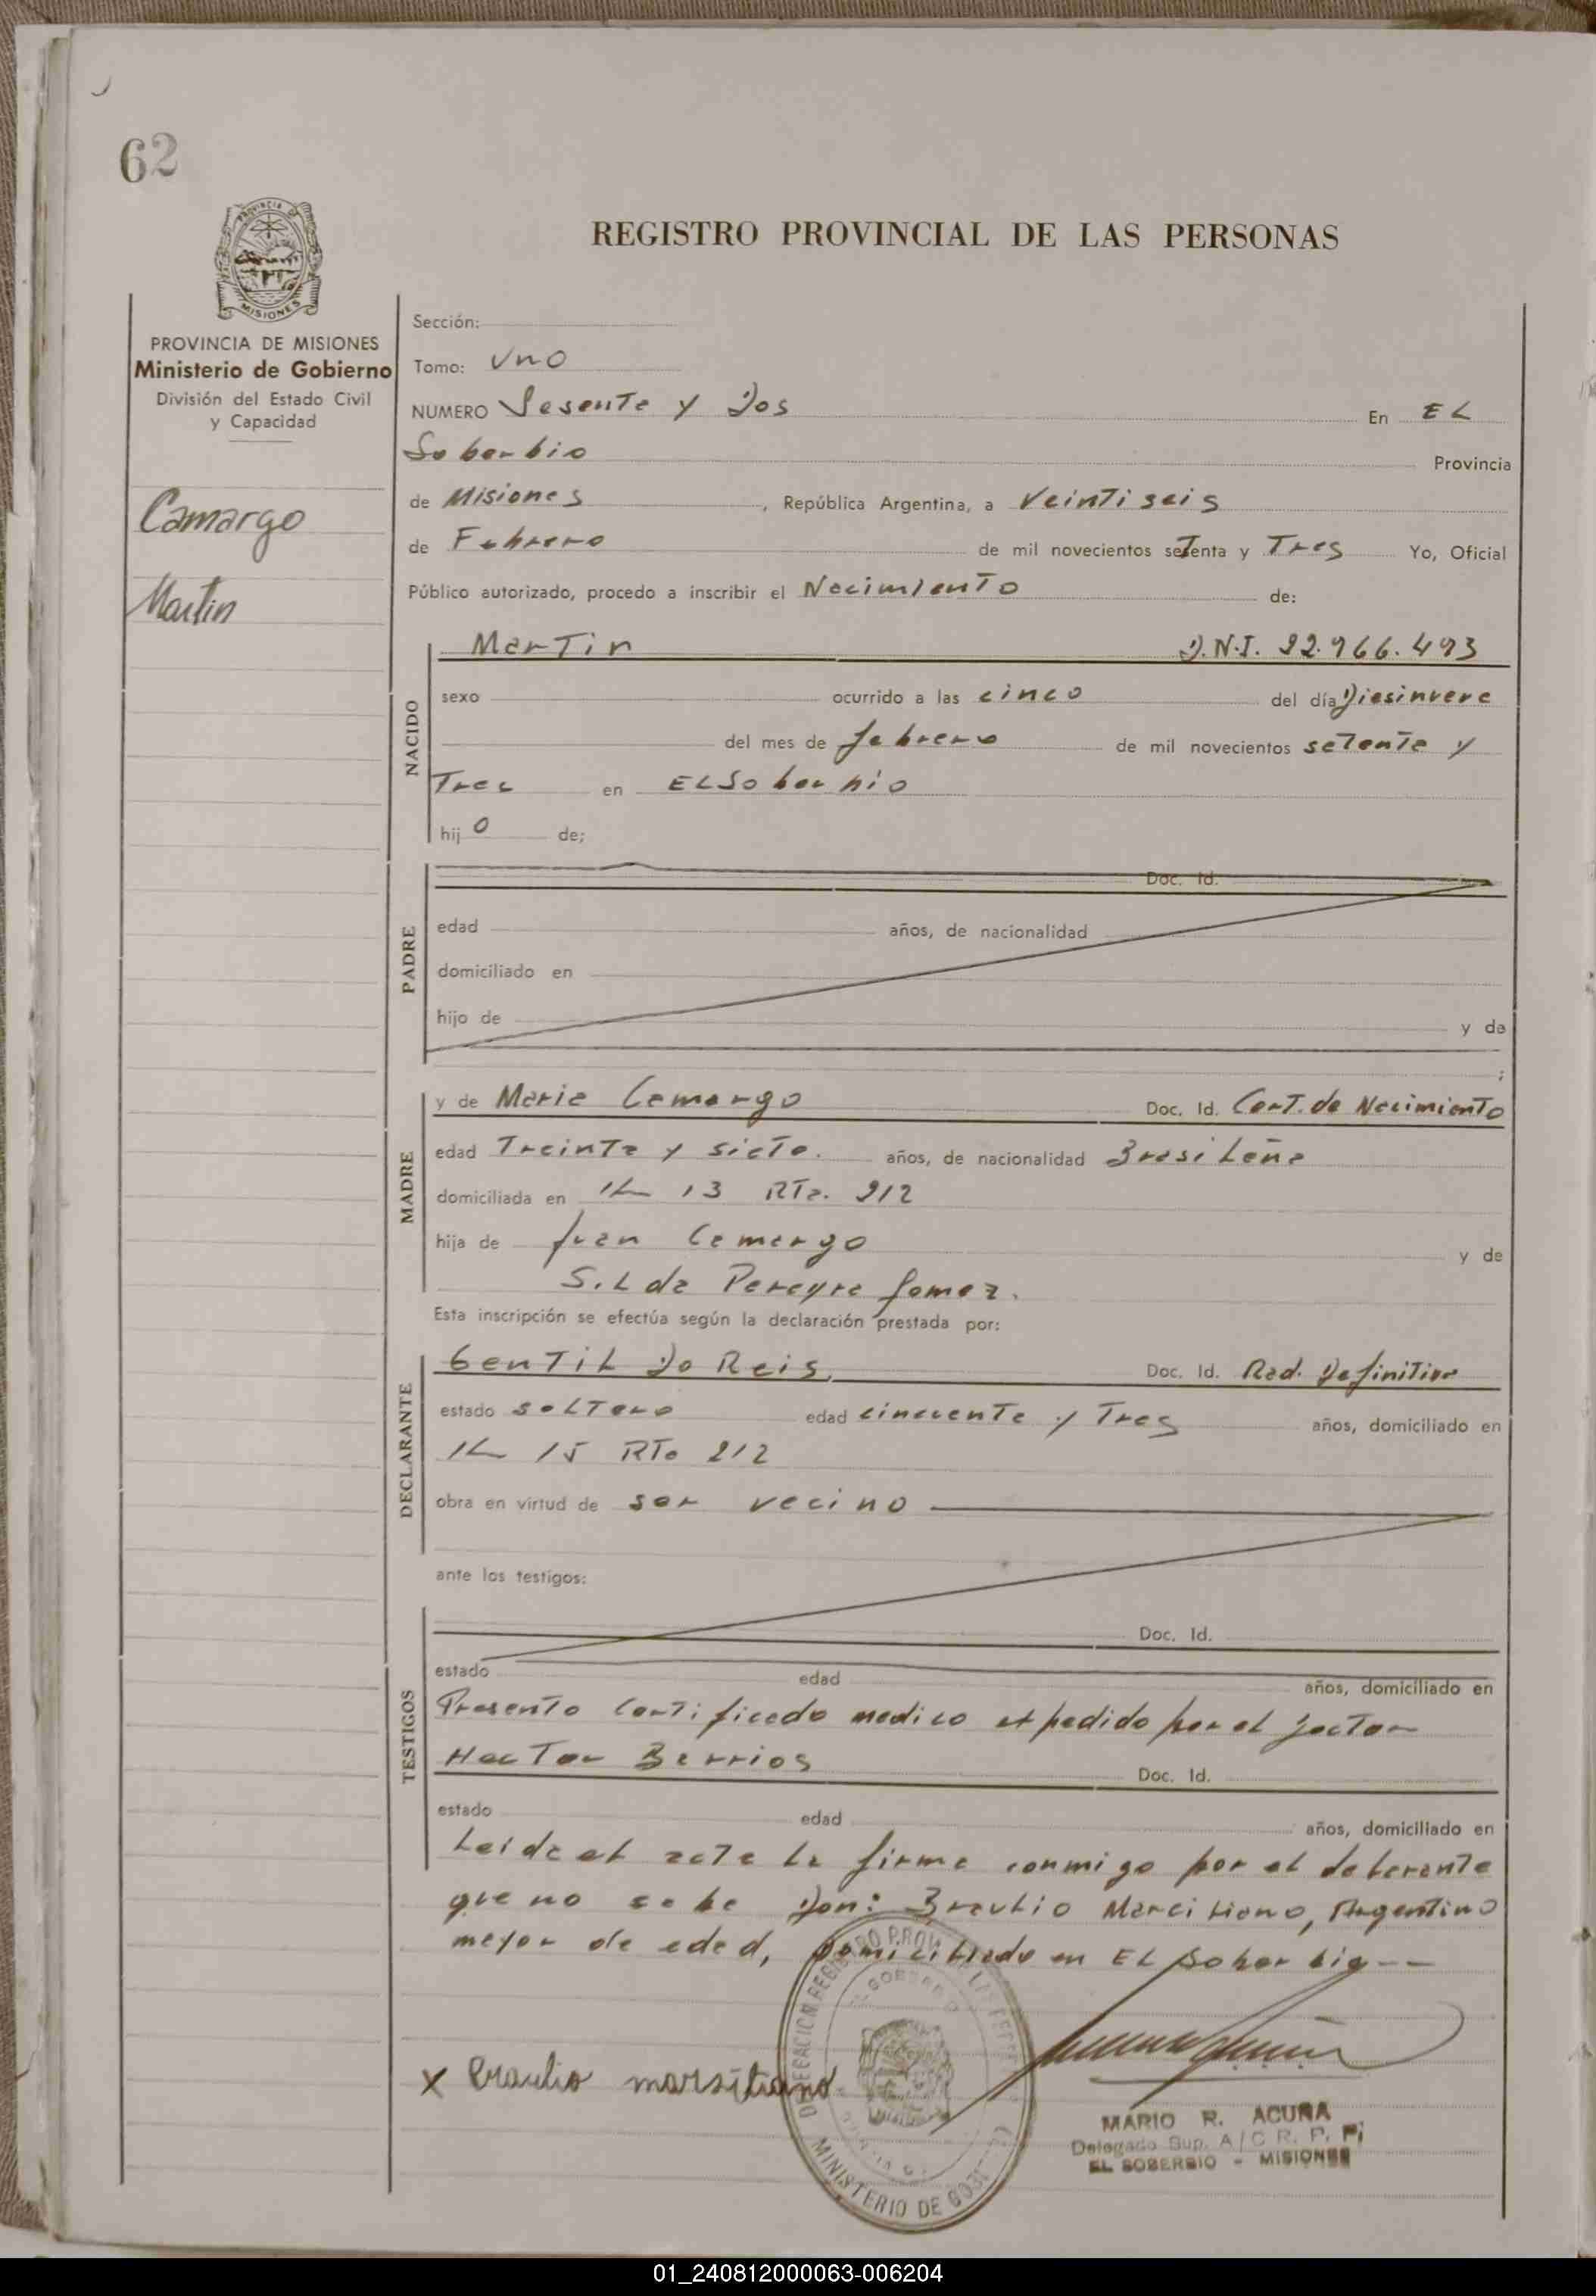 62
PROVINCIA DE
MISIONES
REGISTRO PROVINCIAL DE LAS PERSONAS
PROVINCIA DE MISIONES
Ministerio de Gobierno
División del Estado Civil
y Capacidad
Camargo
Martin
Sección:
Tomo: Uno
NUMERO Sesenta y Dos En EL
Soberbio Provincia
de Misiones, República Argentina, a Veintiseis
de Febrero de mil novecientos setenta y Tres Yo, Oficial
Público autorizado, procedo a inscribir el Nacimiento de:
NACIDO
Martin D.N.I. 22.966.493
sexo ocurrido a las cinco del día Diesinueve
del mes de febrero de mil novecientos setenta y
Tres en EL Soberbio
hijo de;
PADRE
Doc. Id.
edad años, de nacionalidad
domiciliado en
hijo de y de
;
MADRE
y de Maria Camargo Doc. Id. Cert. de Nacimiento
edad Treinta y siete. años, de nacionalidad Brasileña
domiciliada en 13 Rta. 212
hija de Juan Camargo y de
Pereyra Gomez.
Esta inscripción se efectúa según la declaración prestada por:
DECLARANTE
Gentil Do Reis, Doc. Id. Rad. Definitiva
estado soltero edad cincuenta y Tres años, domiciliado en
15 RTa 212
obra en virtud de ser vecino
ante los testigos:
TESTIGOS
Doc. Id.
estado edad años, domiciliado en
Presento Certificado medico expedido por el Doctor
Hector Berrios Doc. Id.
estado edad años, domiciliado en
Leida el acta la firma conmigo por el declarante
que no sabe Don: Braulio Marcitiano, Argentino
mayor de edad, domiciliado en EL Soberbio--
x Braulio marsitiano
MINISTERIO DE
MARIO R. ACUÑA
Delegado Sup. A/C R. P. P.
EL SOBERBIO - MISIONES
01_240812000063-006204